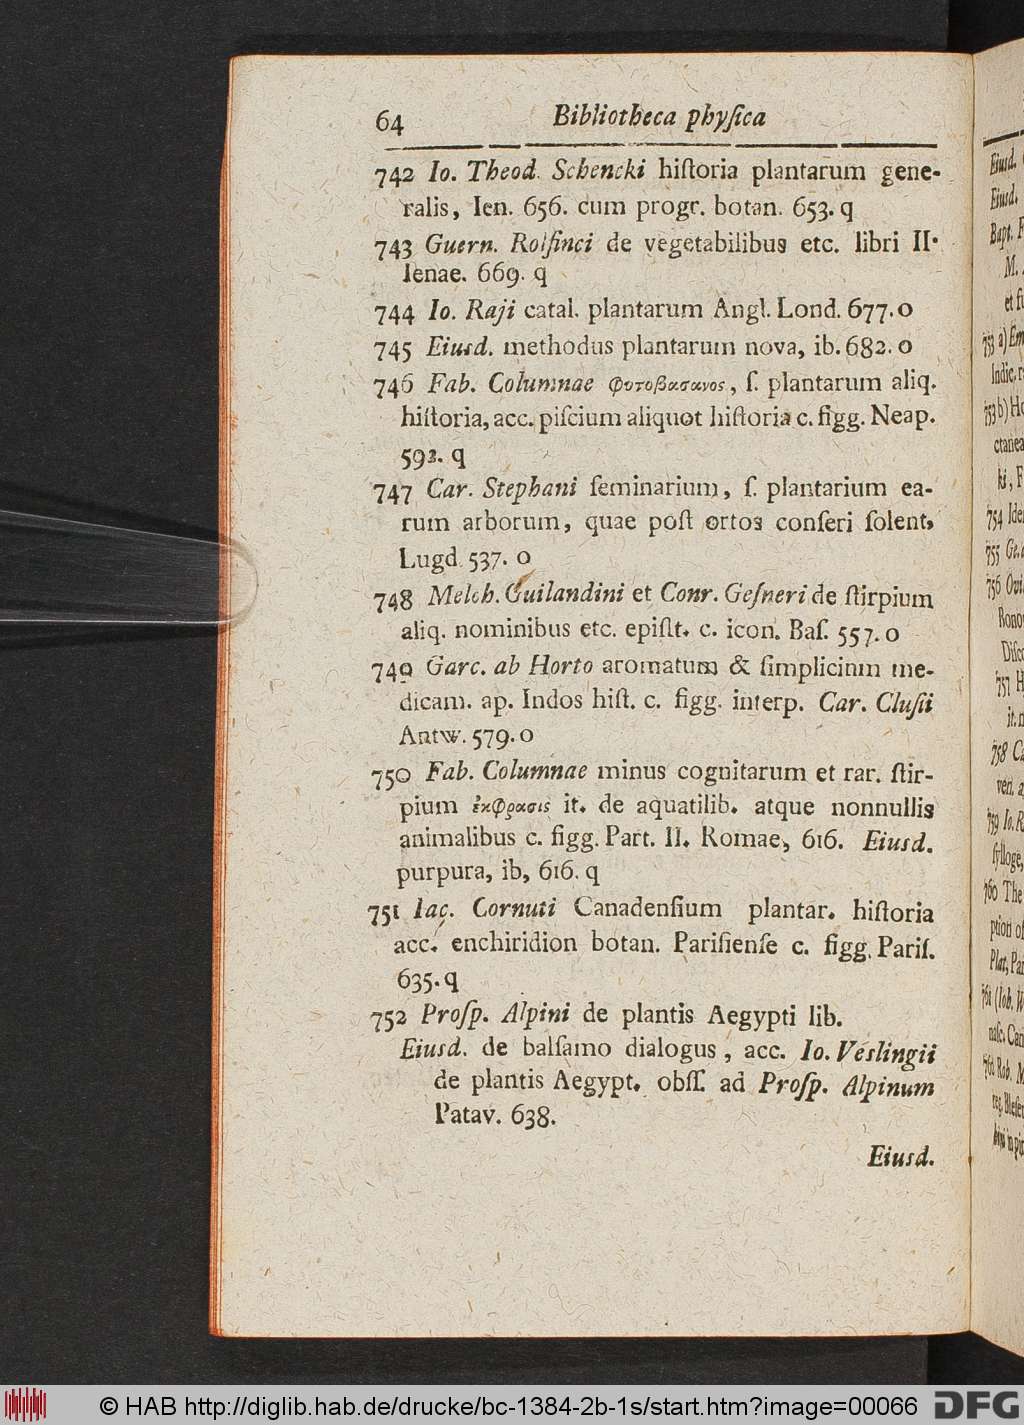 64 Bibliotheca phyſica
742 Io. Theod. Schencki hiſtoria plantarum gene-
ralis, Ien. 656. cum progr. botan. 653. q
743 Guern. Rolfinci de vegetabilibus etc. libri II.
Ienae. 669. q
744 Io. Raji catal. plantarum Angl. Lond. 677. o
745 Eiusd. methodus plantarum nova, ib. 682. o
746 Fab. Columnae φυτοβασανος, ſ. plantarum aliq.
hiſtoria, acc. piſcium aliquot hiſtoria c. figg. Neap.
592. q
747 Car. Stephani ſeminarium, ſ. plantarium ea-
rum arborum, quae poſt ortos conſeri ſolent,
Lugd. 537. o
748 Melch. Guilandini et Conr. Geſneri de ſtirpium
aliq. nominibus etc. epiſt. c. icon. Baſ. 557. o
749 Garc. ab Horto aromatum & ſimplicium me-
dicam. ap. Indos hiſt. c. figg. interp. Car. Cluſii
Antw. 579. o
750 Fab. Columnae minus cognitarum et rar. ſtir-
pium ἐκφρασις it. de aquatilib. atque nonnullis
animalibus c. figg. Part. II. Romae, 616. Eiusd.
purpura, ib, 616. q
751 Iac. Cornuti Canadenſium plantar. hiſtoria
acc. enchiridion botan. Pariſienſe c. figg. Pariſ.
635. q
752 Proſp. Alpini de plantis Aegypti lib.
Eiusd. de balſamo dialogus, acc. Io. Veslingii
de plantis Aegypt. obſſ. ad Proſp. Alpinum
Patav. 638.
Eiusd.
Eiusd.
Eiusd.
Bapt.
M.
et
753 a)
Indic.
753 b)
ctanea
ki,
754
755
756
Bono
757
it.
758
veri.
759 Io.
ſylloge,
760 The
ption of
Plat,
761
762 Rob.
© HAB http://diglib.hab.de/drucke/bc-1384-2b-1s/start.htm?image=00066
DFG